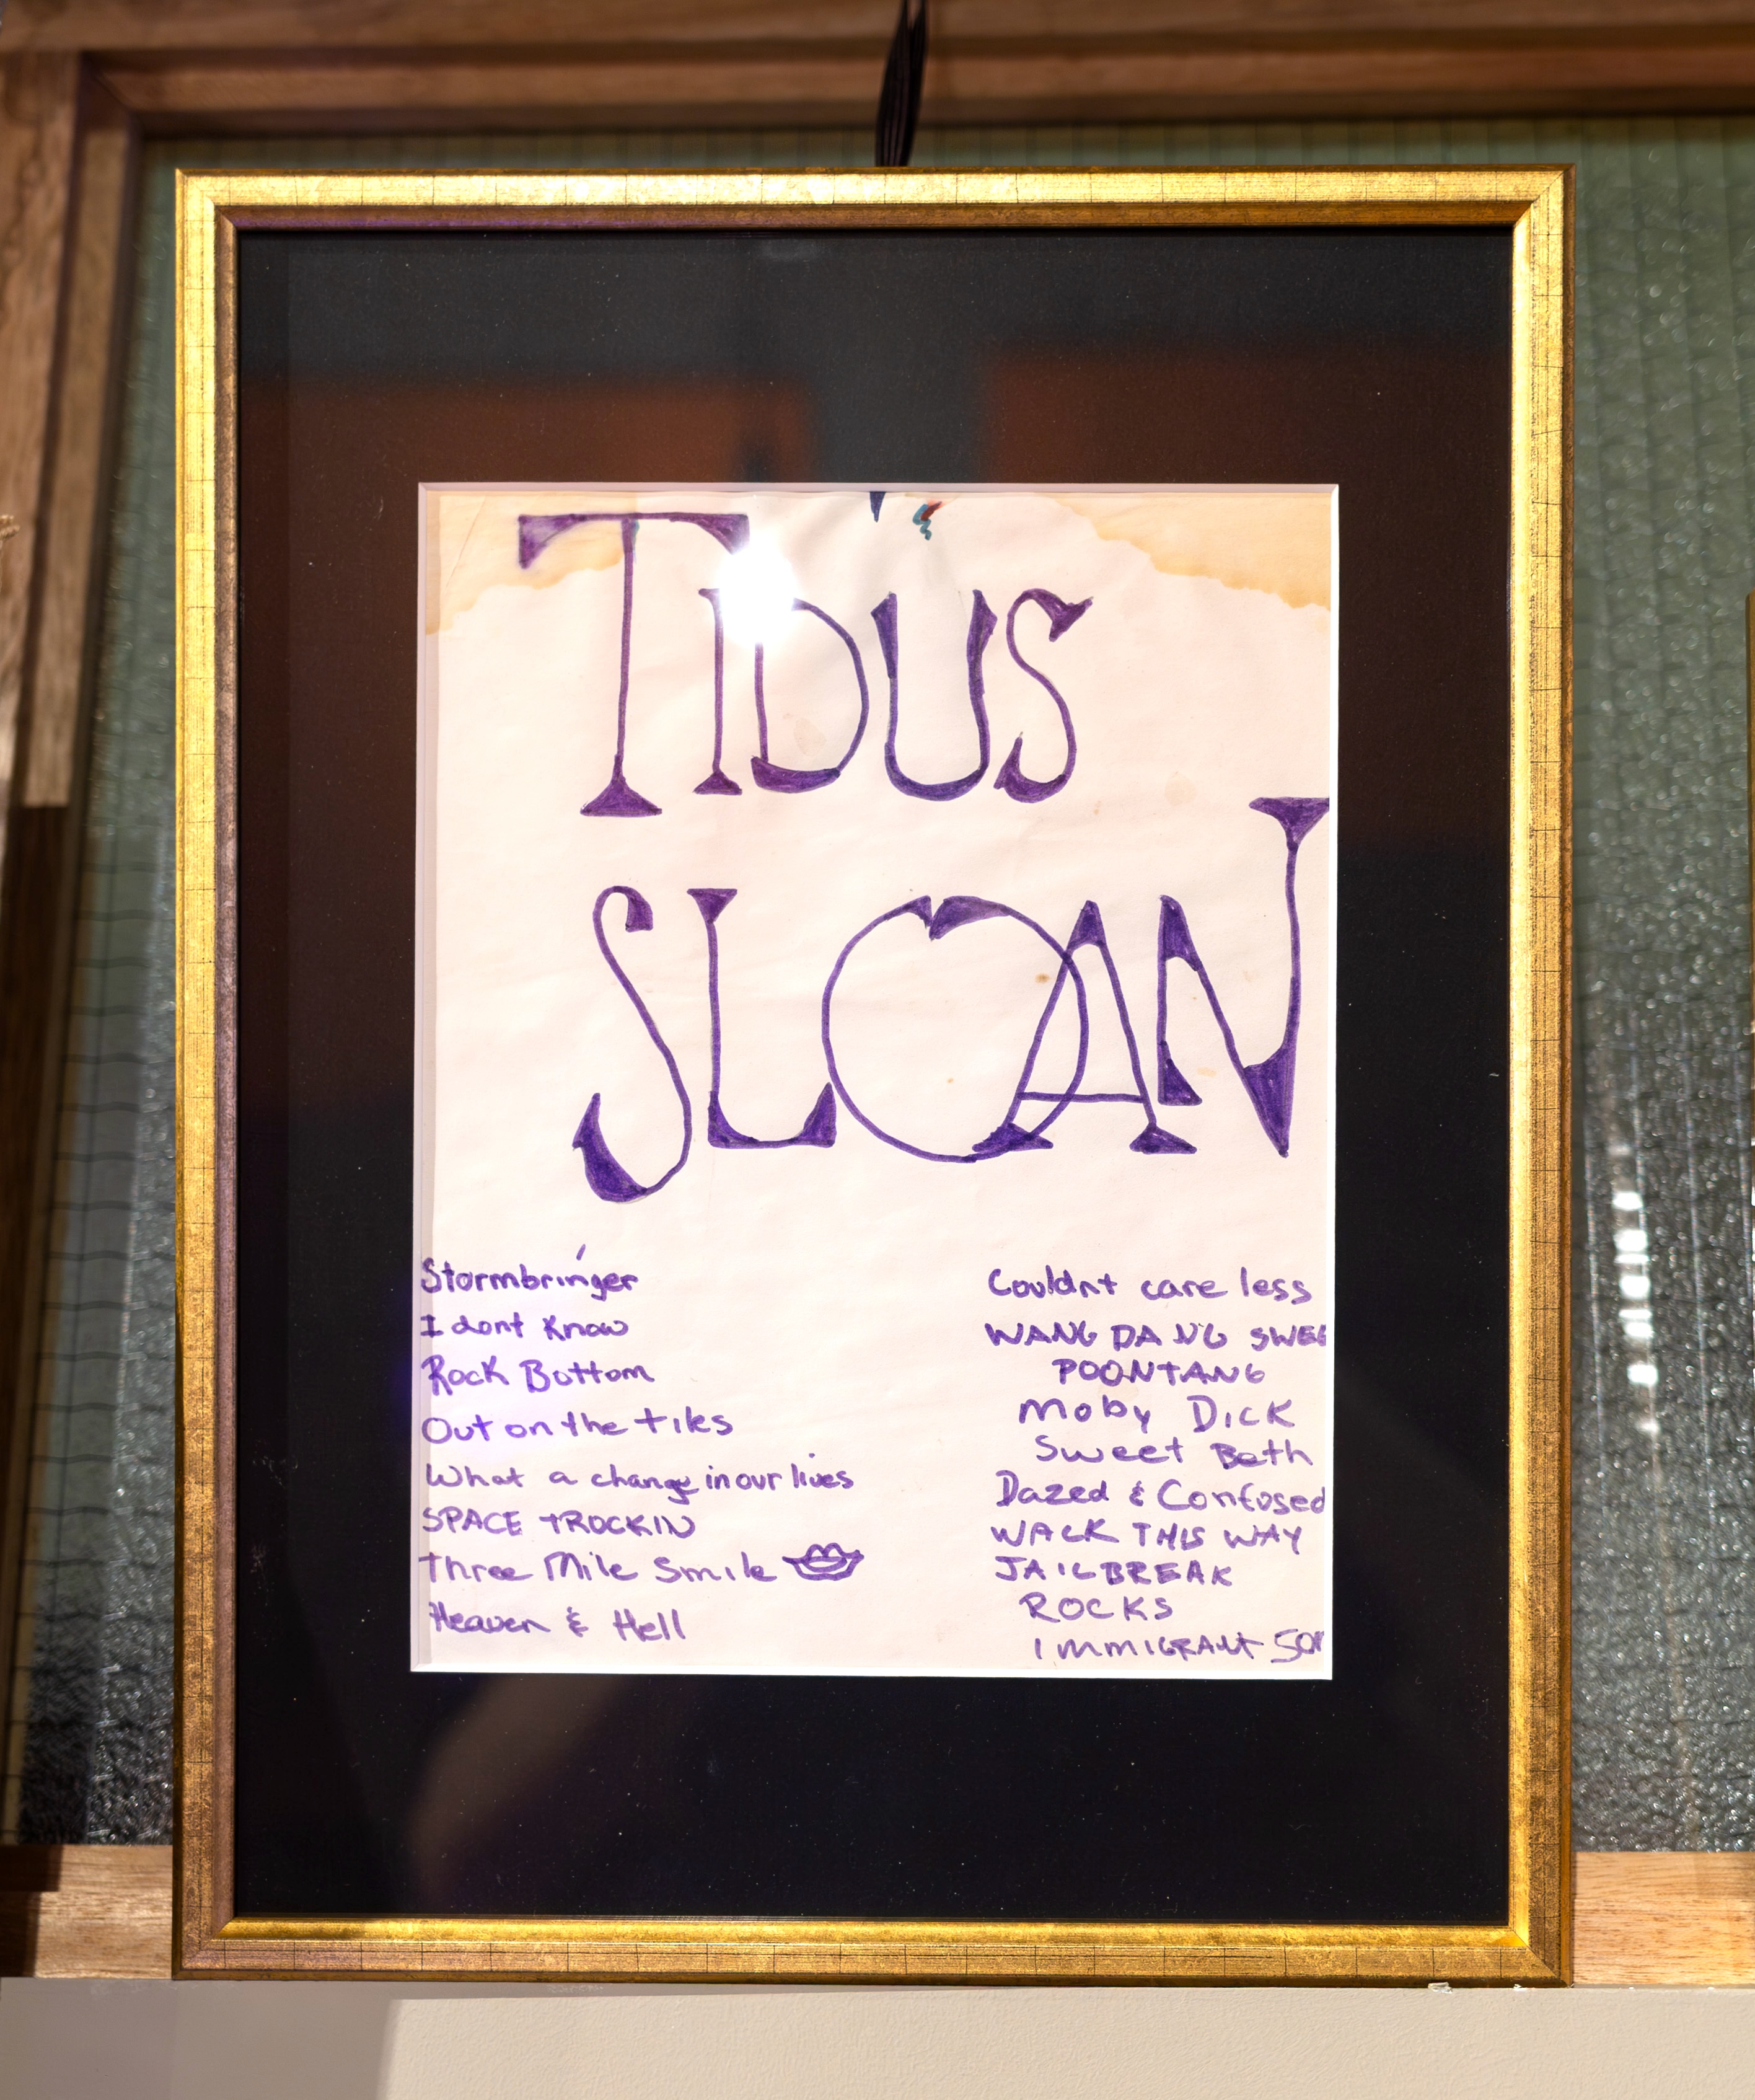 TIDUS
SLOAN
Stormbringer
I dont know
Rock Bottom
Out on the tiles
What a change in our lives
SPACE TROCKIN
Three Mile Smile
Heaven & Hell
Couldnt care less
WANG DANG SWEE
POONTANG
Moby DICK
Sweet Beth
Dazed & Confused
WALK THIS WAY
JAILBREAK
ROCKS
IMMIGRANT SON